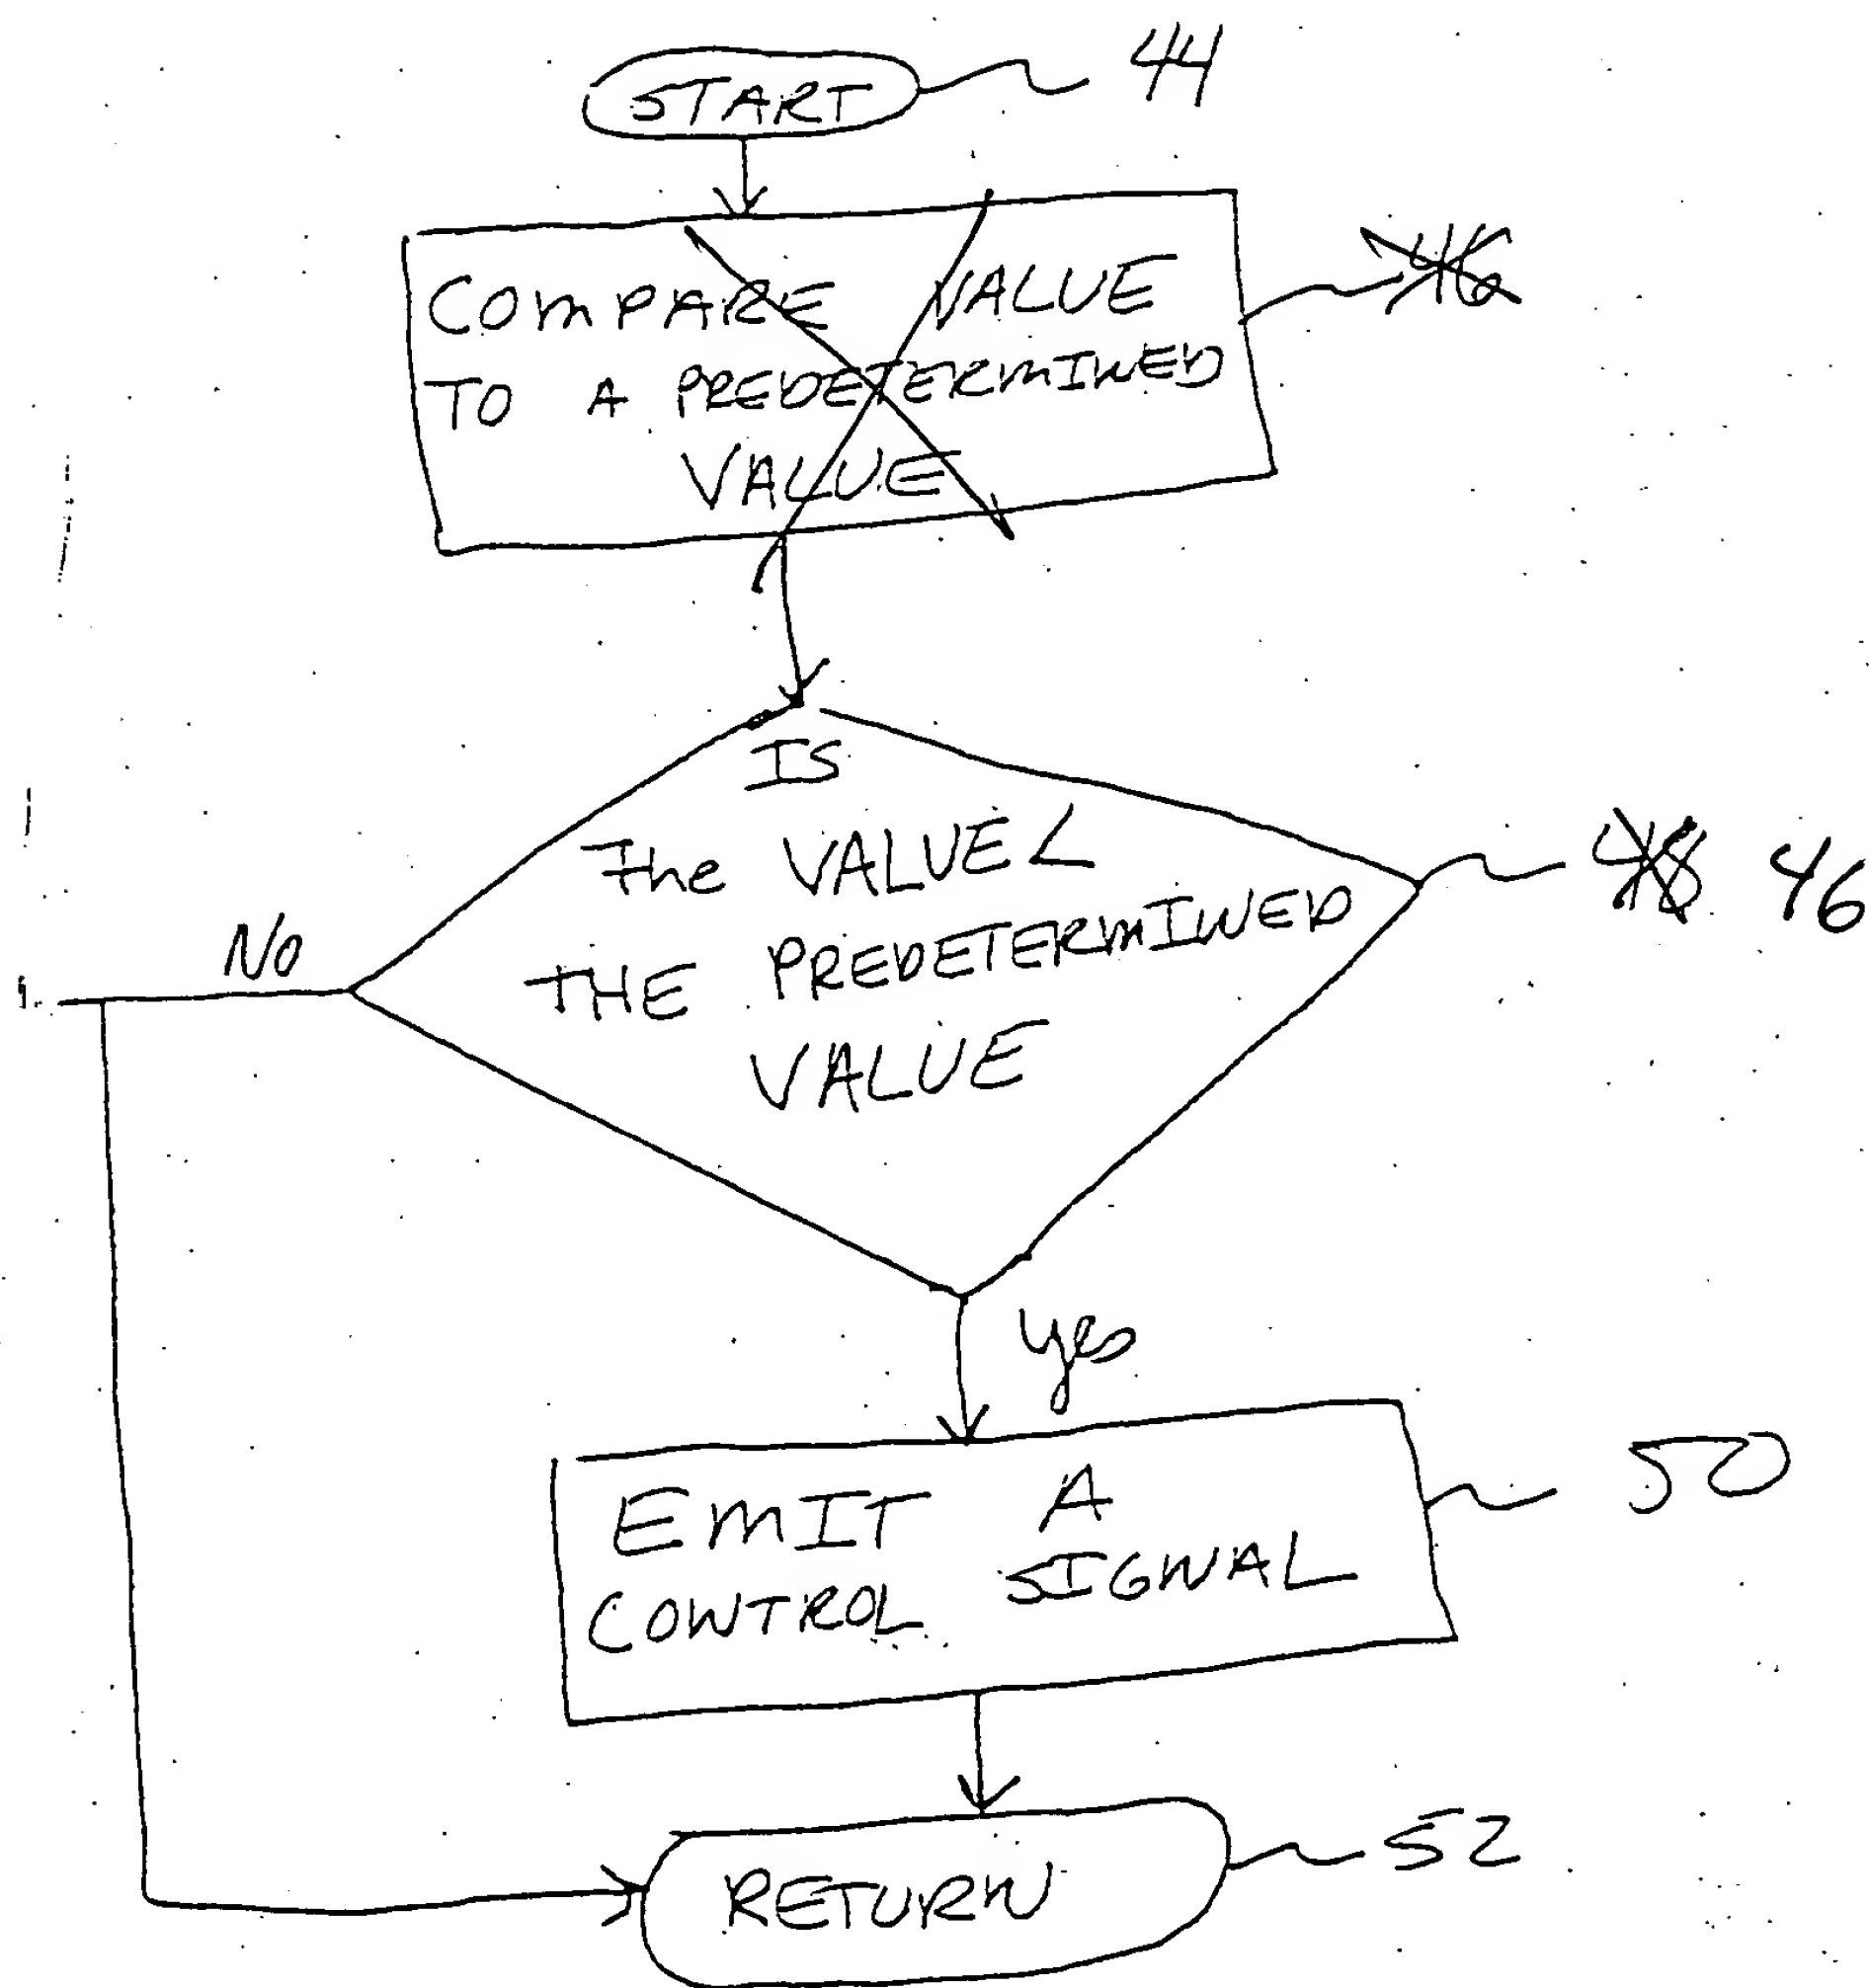 START 44
COMPARE VALUE
TO A PREDETERMINED
VALUE
46
IS
The VALUE <
THE PREDETERMINED
VALUE
48 46
No
yes
EMIT A
CONTROL SIGNAL
50
RETURN
52